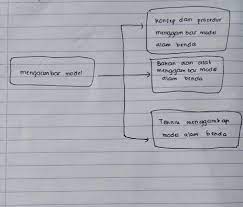 mengambar model
Konsep dan prosedur
menggambar model
alam benda
Bahan dan alat
menggambar model
alam benda
Teknik menggambar
model alam benda